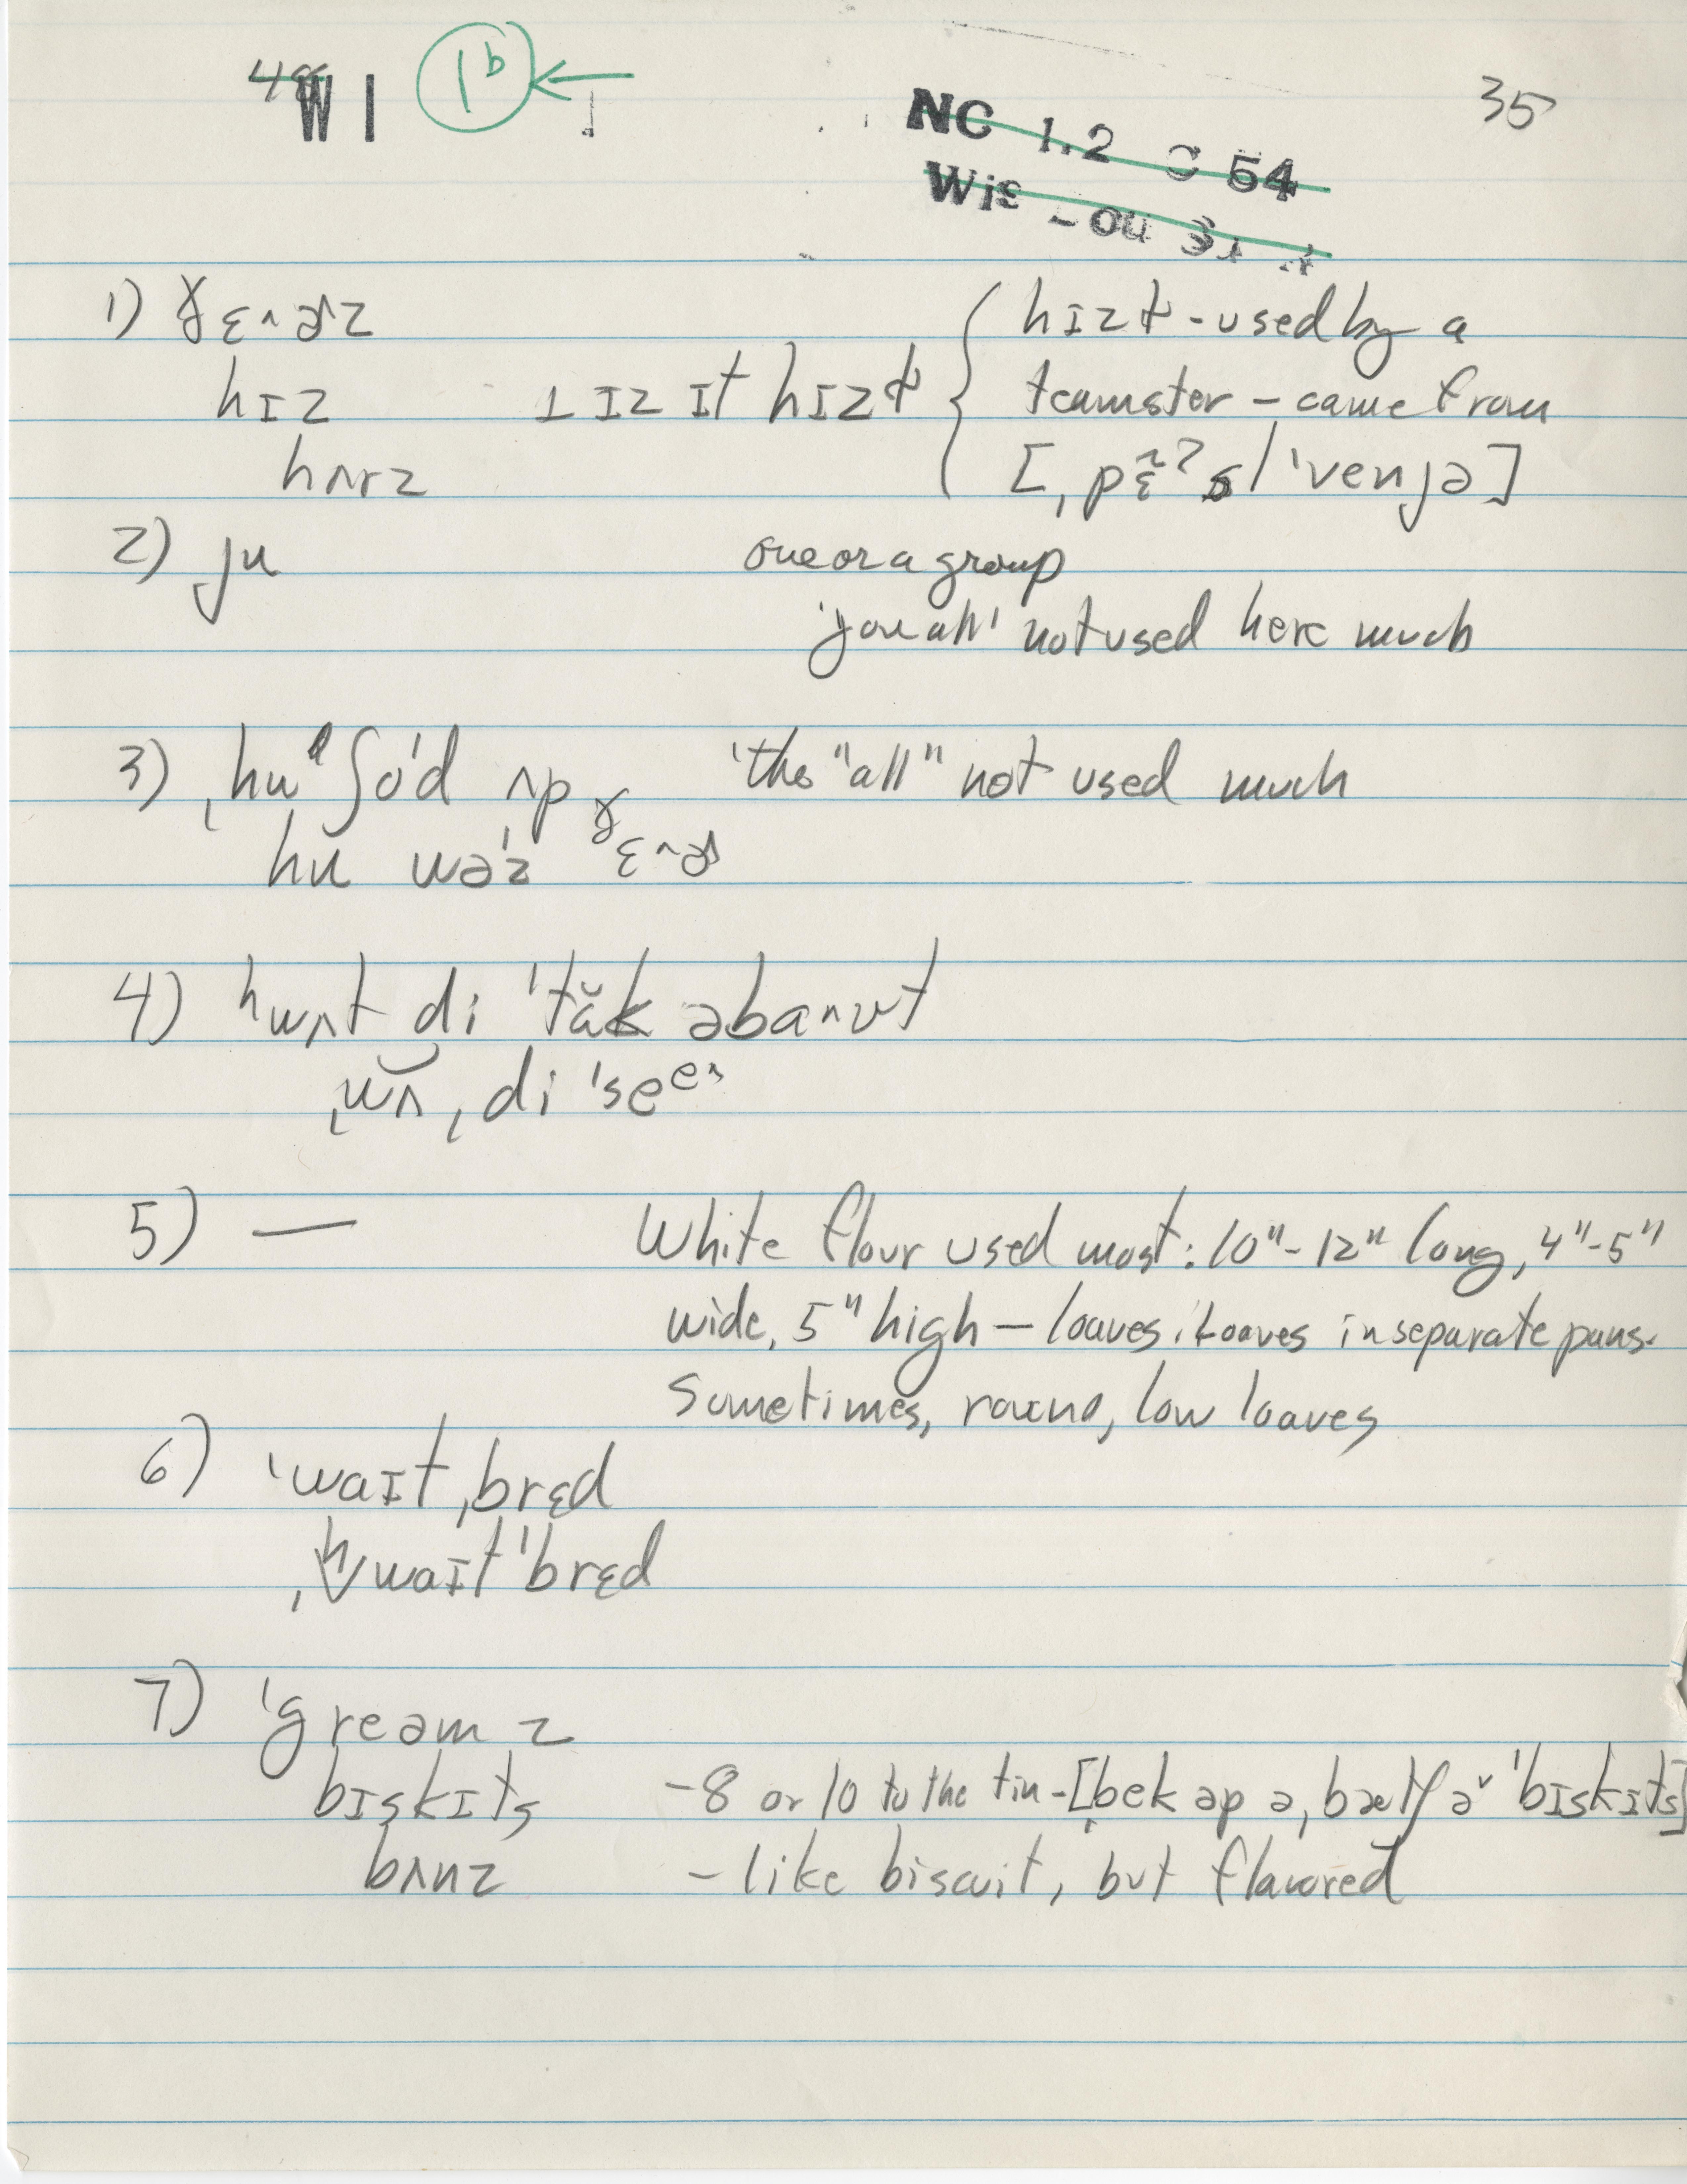 WI 1b ← 35
NC 1.2 C 54
Wis
1) ɣɛ^ɚz { hɪzt - used by a
hɪz ɪz ɪt hɪzt teamster – came from
hʌrz [ˌpɛ̃ˀsl'venjə]
2) ju one or a group
'you all' not used here much
3) ˌhu ʃo'd ʌp 'the "all" not used much
hu wə'z ɣɛ^ɚ
4) hwʌt di 'tăk əbaʌʊt
ˌwʌ ˌdi 'see^
5) — White flour used most: 10"-12" long, 4"-5"
wide, 5" high – loaves. Loaves in separate pans.
Sometimes, round, low loaves
6) 'waɪt ˌbrɛd
ˌhwaɪt 'brɛd
7) 'greəmz
bɪskɪts - 8 or 10 to the tin - [bek əp ə ˌbætʃ ə 'bɪskɪts]
bʌnz - like biscuit, but flavored